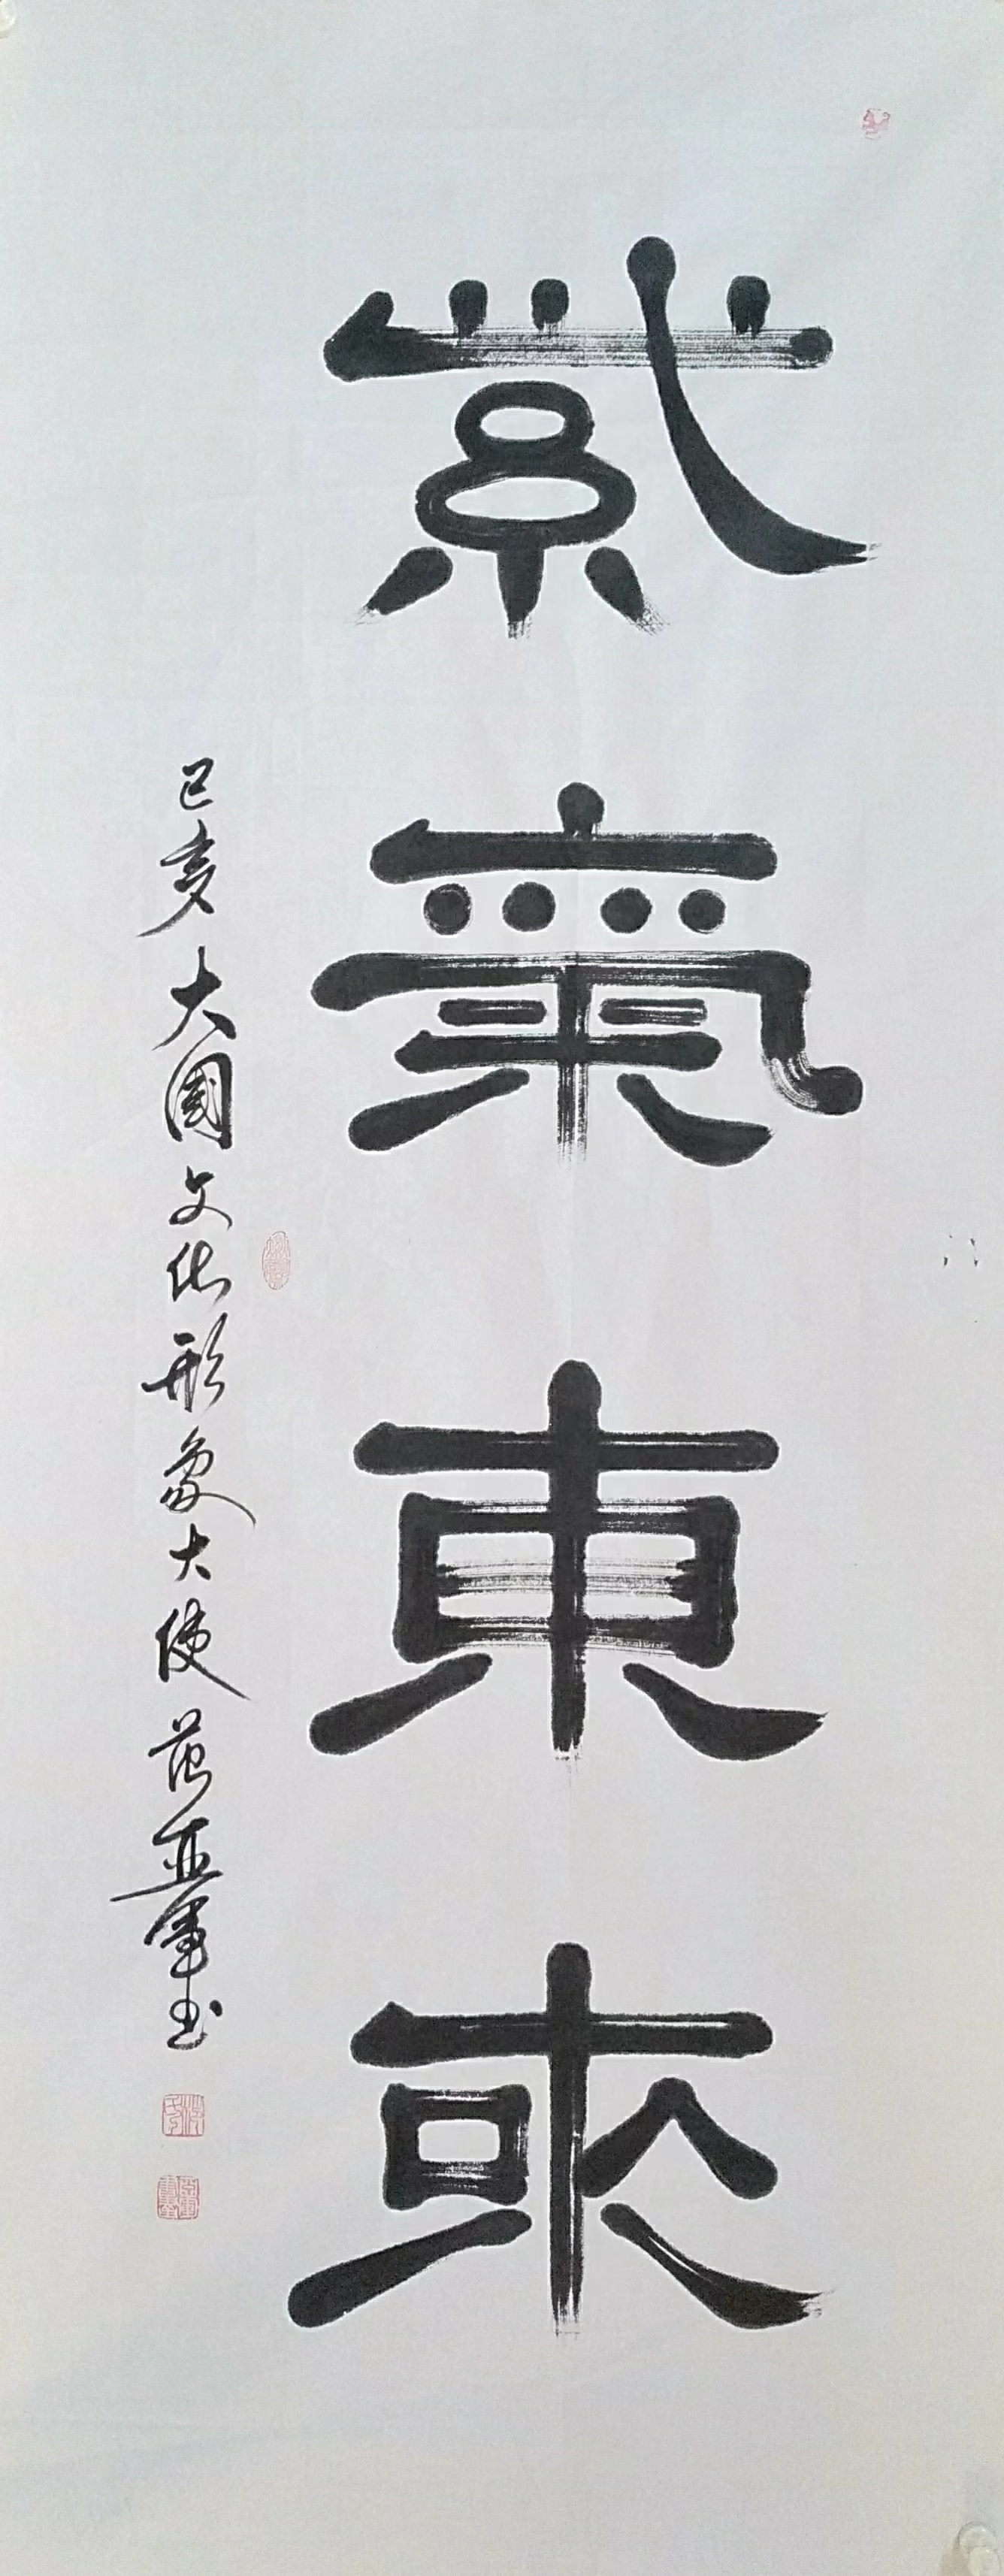 紫氣東來
己亥大國文化形象大使范亚軍书